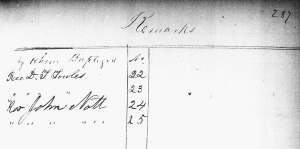 237
Remarks
by Whom Baptized No.
Rev D. T. Towles 22
" " " 23
Rev John Nott 24
" " " " 25